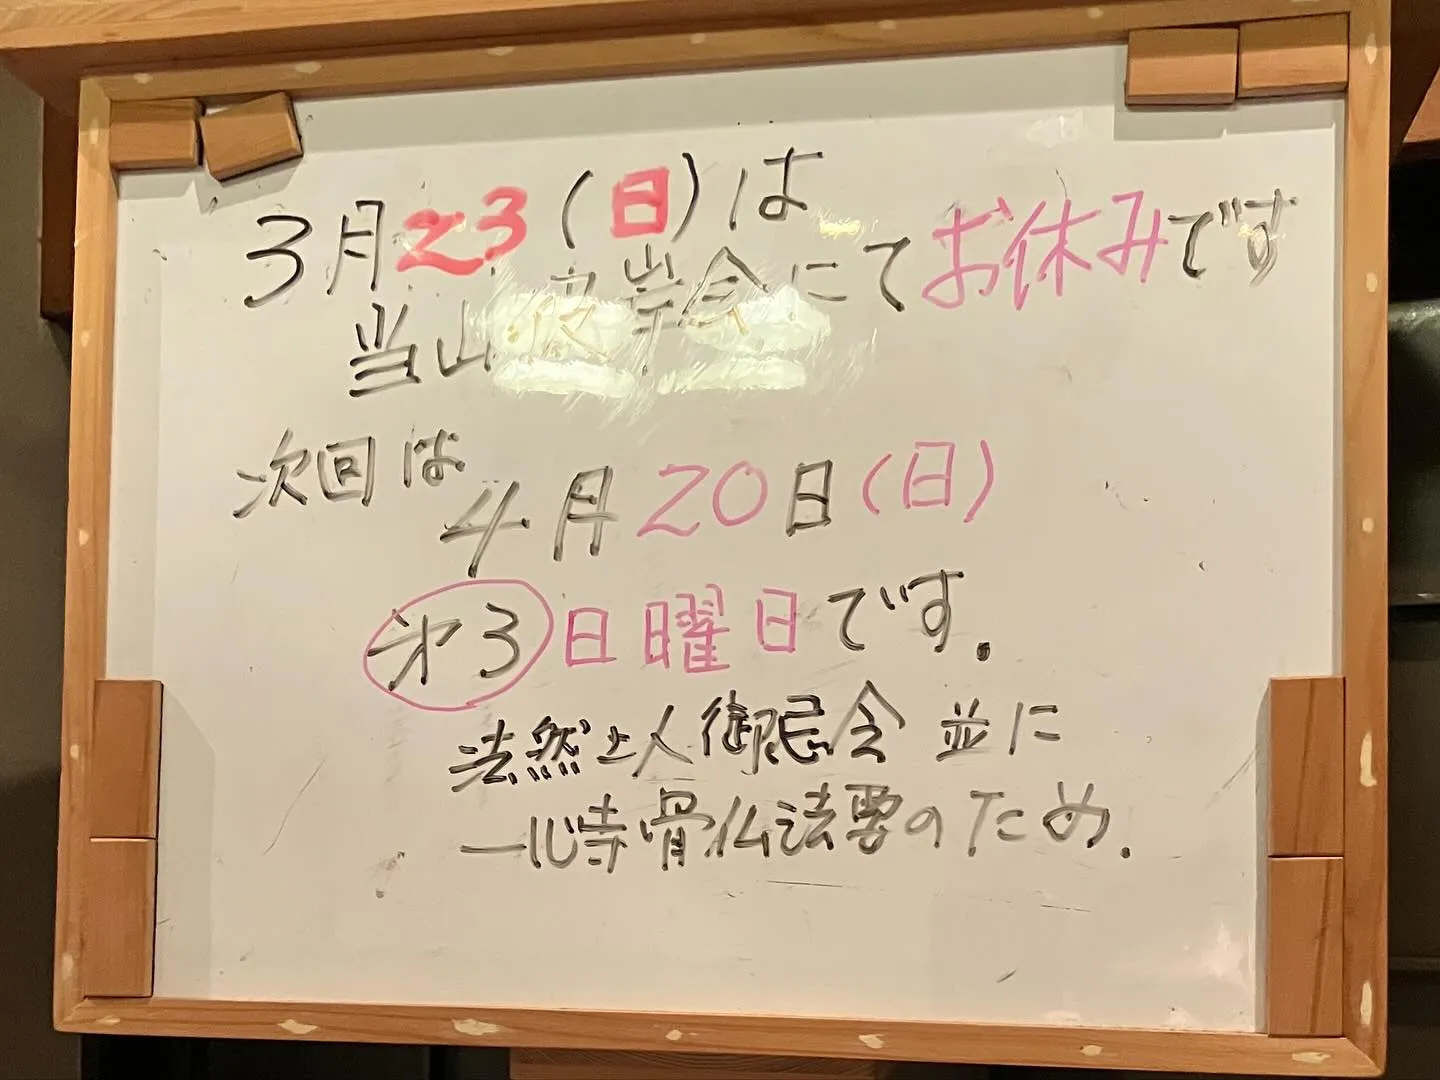 3月23(日)は
当山彼岸会にてお休みです
次回は
4月20日(日)
㐧3日曜日です.
法然上人御忌会 並に
一心寺骨仏法要のため.